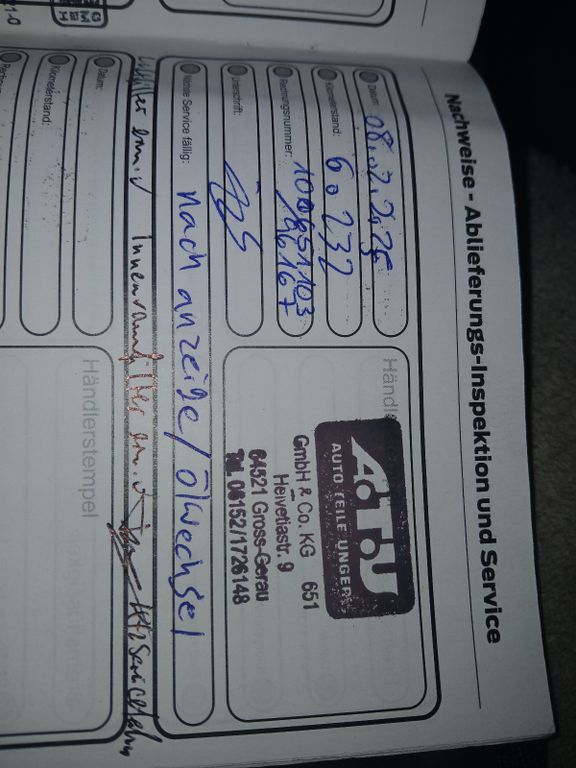 Nachweise - Ablieferungs-Inspektion und Service
Datum: 08.02.2025
Kilometerstand: 60.232
Rechnungsnummer:
Unterschrift:
Nächste Service fällig: Nach anzeige / Ölwechsel
ATU
AUTO TEILE UNGER
GmbH & Co. KG 651
Helvetiastr. 9
64521 Gross-Gerau
Tel. 06152/1726148
Innenraumfilter ern.
Datum:
Kilometerstand:
Händlerstempel